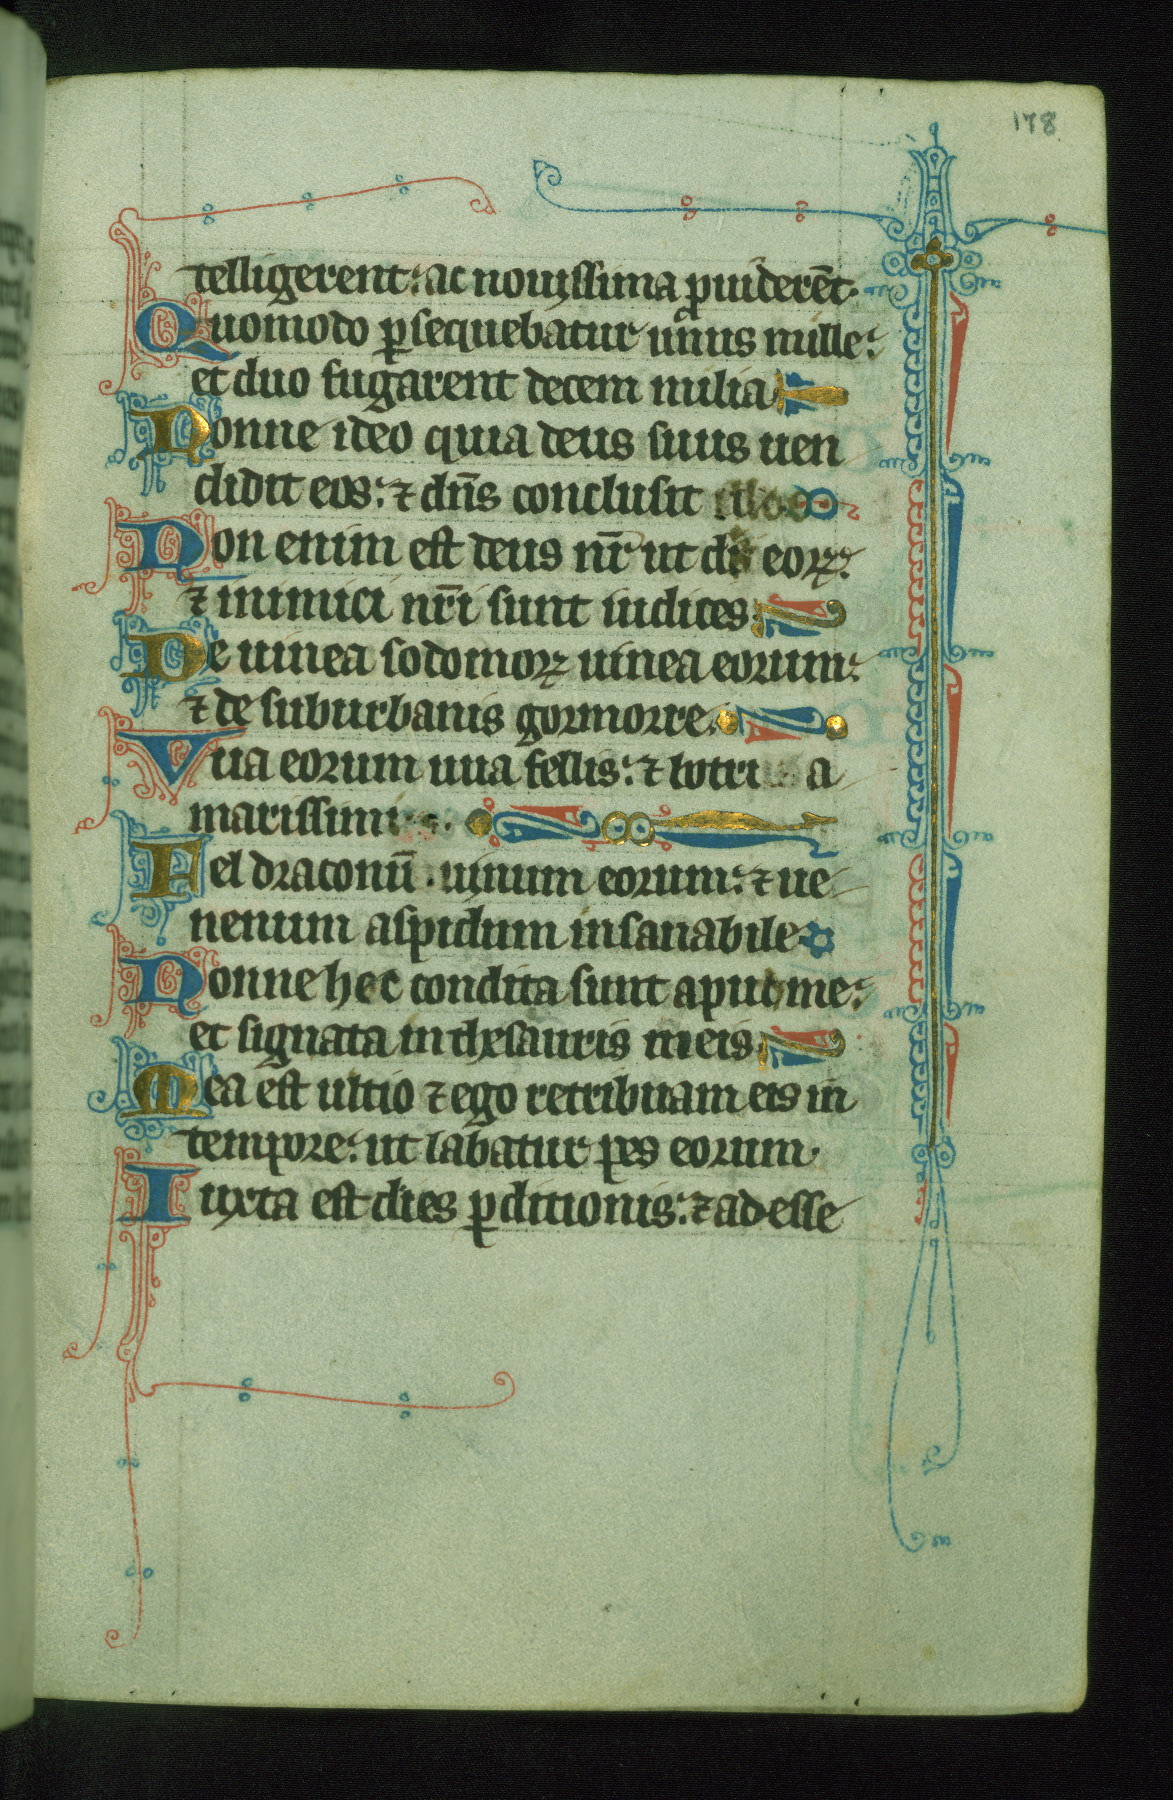 178
telligerent: ac nouissima ꝓuiderēt.
Quomodo ꝑsequebatur unus mille:
et duo fugarent decem milia
Nonne ideo quia deus suus uen
didit eos: ⁊ dn̄s conclusit illos
Non enim est deus nr̄ ut dii eoꝝ:
⁊ inimici nr̄i sunt iudices
De uinea sodomoꝝ uinea eorum:
⁊ de suburbanis gormorre.
Uua eorum uua fellis: ⁊ botri a
marissimi
Fel draconū. uinum eorum: ⁊ ue
nenum aspidum insanabile
Nonne hec condita sunt apud me:
et signata in thesauris meis
Mea est ultio ⁊ ego retribuam eis in
tempore: ut labatur pes eorum.
Iuxta est dies ꝑditionis: ⁊ adesse